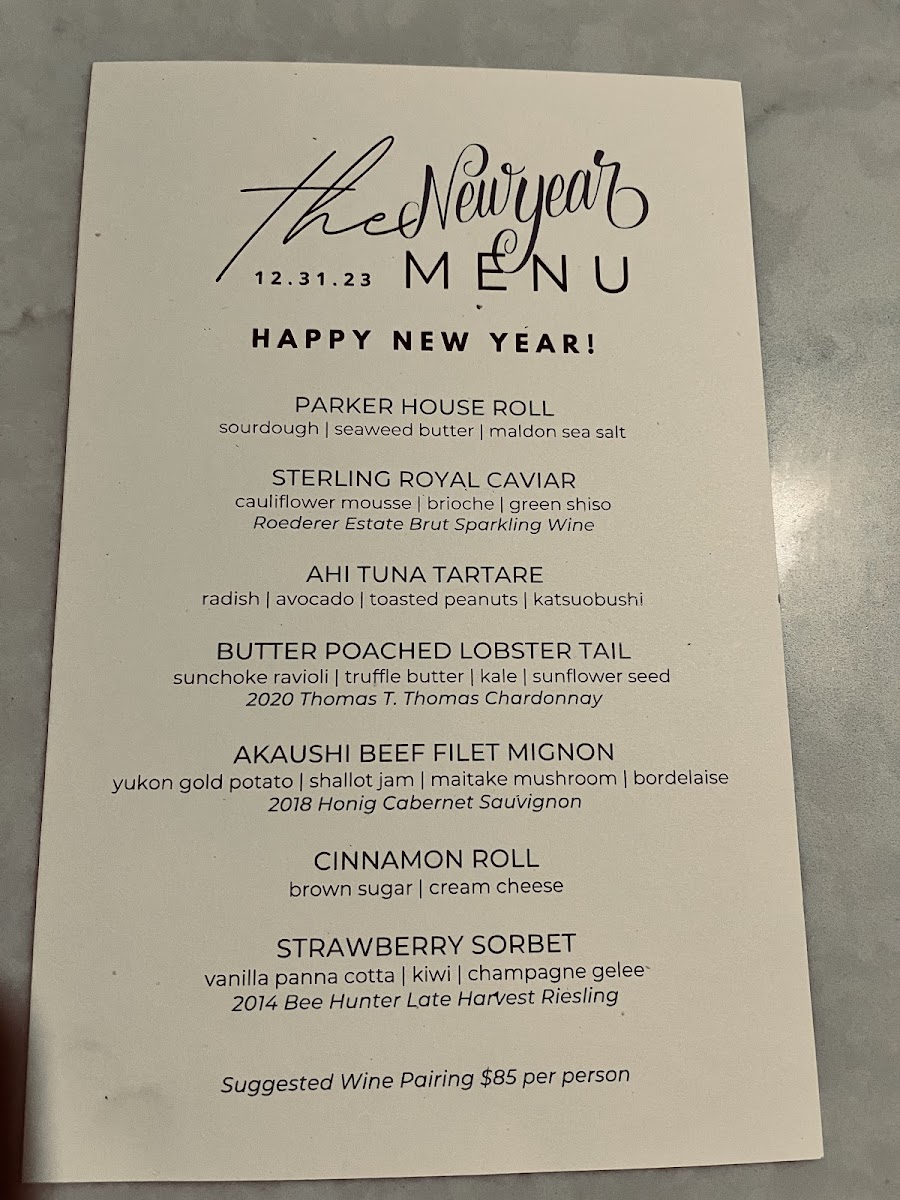 the New year
12.31.23 MENU
HAPPY NEW YEAR!
PARKER HOUSE ROLL
sourdough | seaweed butter | maldon sea salt
STERLING ROYAL CAVIAR
cauliflower mousse | brioche | green shiso
Roederer Estate Brut Sparkling Wine
AHI TUNA TARTARE
radish | avocado | toasted peanuts | katsuobushi
BUTTER POACHED LOBSTER TAIL
sunchoke ravioli | truffle butter | kale | sunflower seed
2020 Thomas T. Thomas Chardonnay
AKAUSHI BEEF FILET MIGNON
yukon gold potato | shallot jam | maitake mushroom | bordelaise
2018 Honig Cabernet Sauvignon
CINNAMON ROLL
brown sugar | cream cheese
STRAWBERRY SORBET
vanilla panna cotta | kiwi | champagne gelee
2014 Bee Hunter Late Harvest Riesling
Suggested Wine Pairing $85 per person